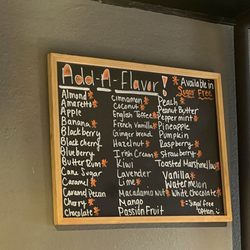 Add-A-Flavor!
* Available in Sugar Free
Almond *
Amaretto *
Apple
Banana *
Blackberry
Black Cherry
Blueberry
Butter Rum *
Cane Sugar
Caramel *
Caramel Pecan
Cherry *
Chocolate *
Cinnamon *
Coconut *
English Toffee *
French Vanilla *
Gingerbread
Hazelnut *
Irish Cream *
Kiwi
Lavender
Lime
Macadamia Nut
Mango
Passion Fruit
Peach *
Peanut Butter
Peppermint *
Pineapple
Pumpkin
Raspberry *
Strawberry *
Toasted Marshmallow
Vanilla *
Watermelon
White Chocolate *
* = Sugar Free option